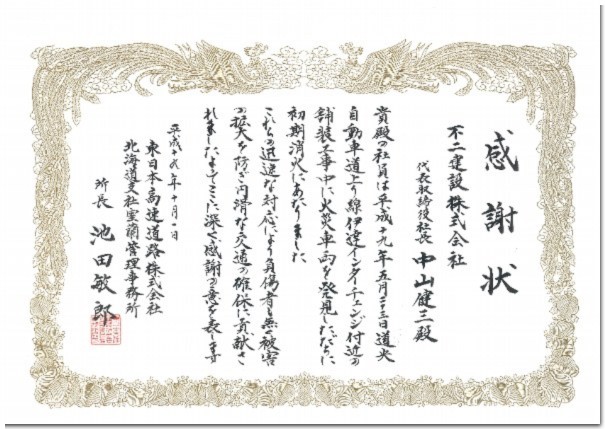 感謝状
不二建設株式会社
代表取締役社長
中山健三殿
貴殿の社員は平成十九年五月二十三日道央
自動車道上り線伊達インターチェンジ付近の
舗装工事中に火災車両を発見しただちに
初期消火にあたりました
これらの迅速な対応により負傷者も無く被害
の拡大を防ぎ円滑な交通の確保に貢献さ
れましたよってここに深く感謝の意を表します
平成十九年十月一日
東日本高速道路株式会社
北海道支社室蘭管理事務所
所長 池田敏郎